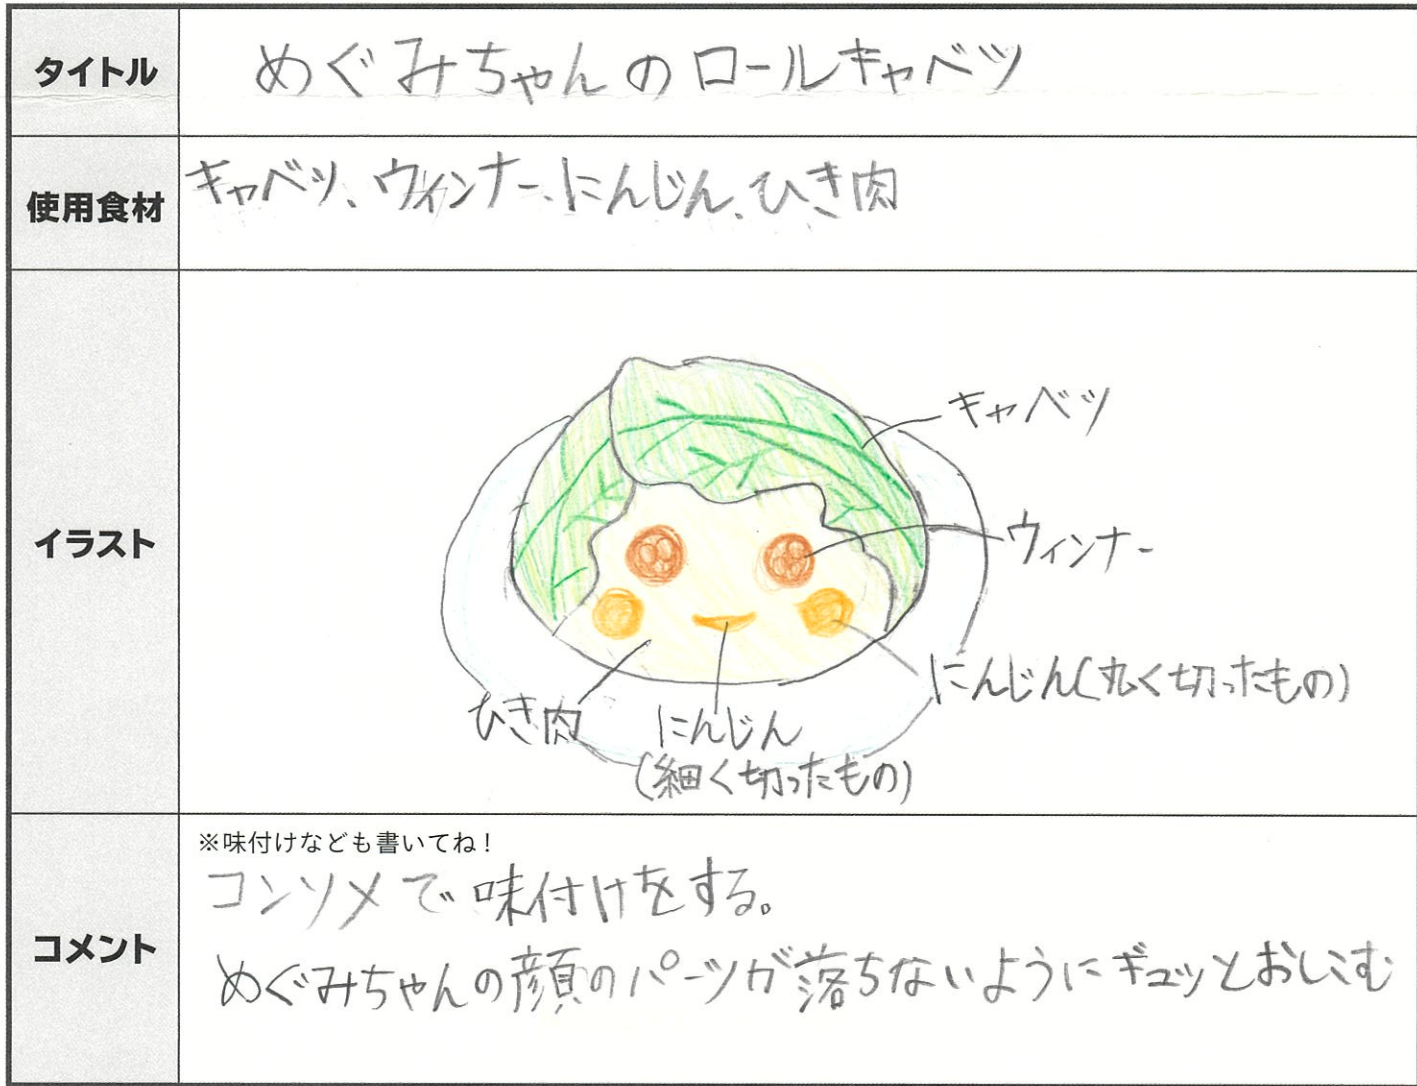 タイトル
めぐみちゃんのロールキャベツ
使用食材
キャベツ、ウィンナー、にんじん、ひき肉
イラスト
キャベツ
ウィンナー
にんじん(丸く切ったもの)
ひき肉
にんじん
(細く切ったもの)
コメント
※味付けなども書いてね!
コンソメで味付けをする。
めぐみちゃんの顔のパーツが落ちないようにギュッとおしこむ